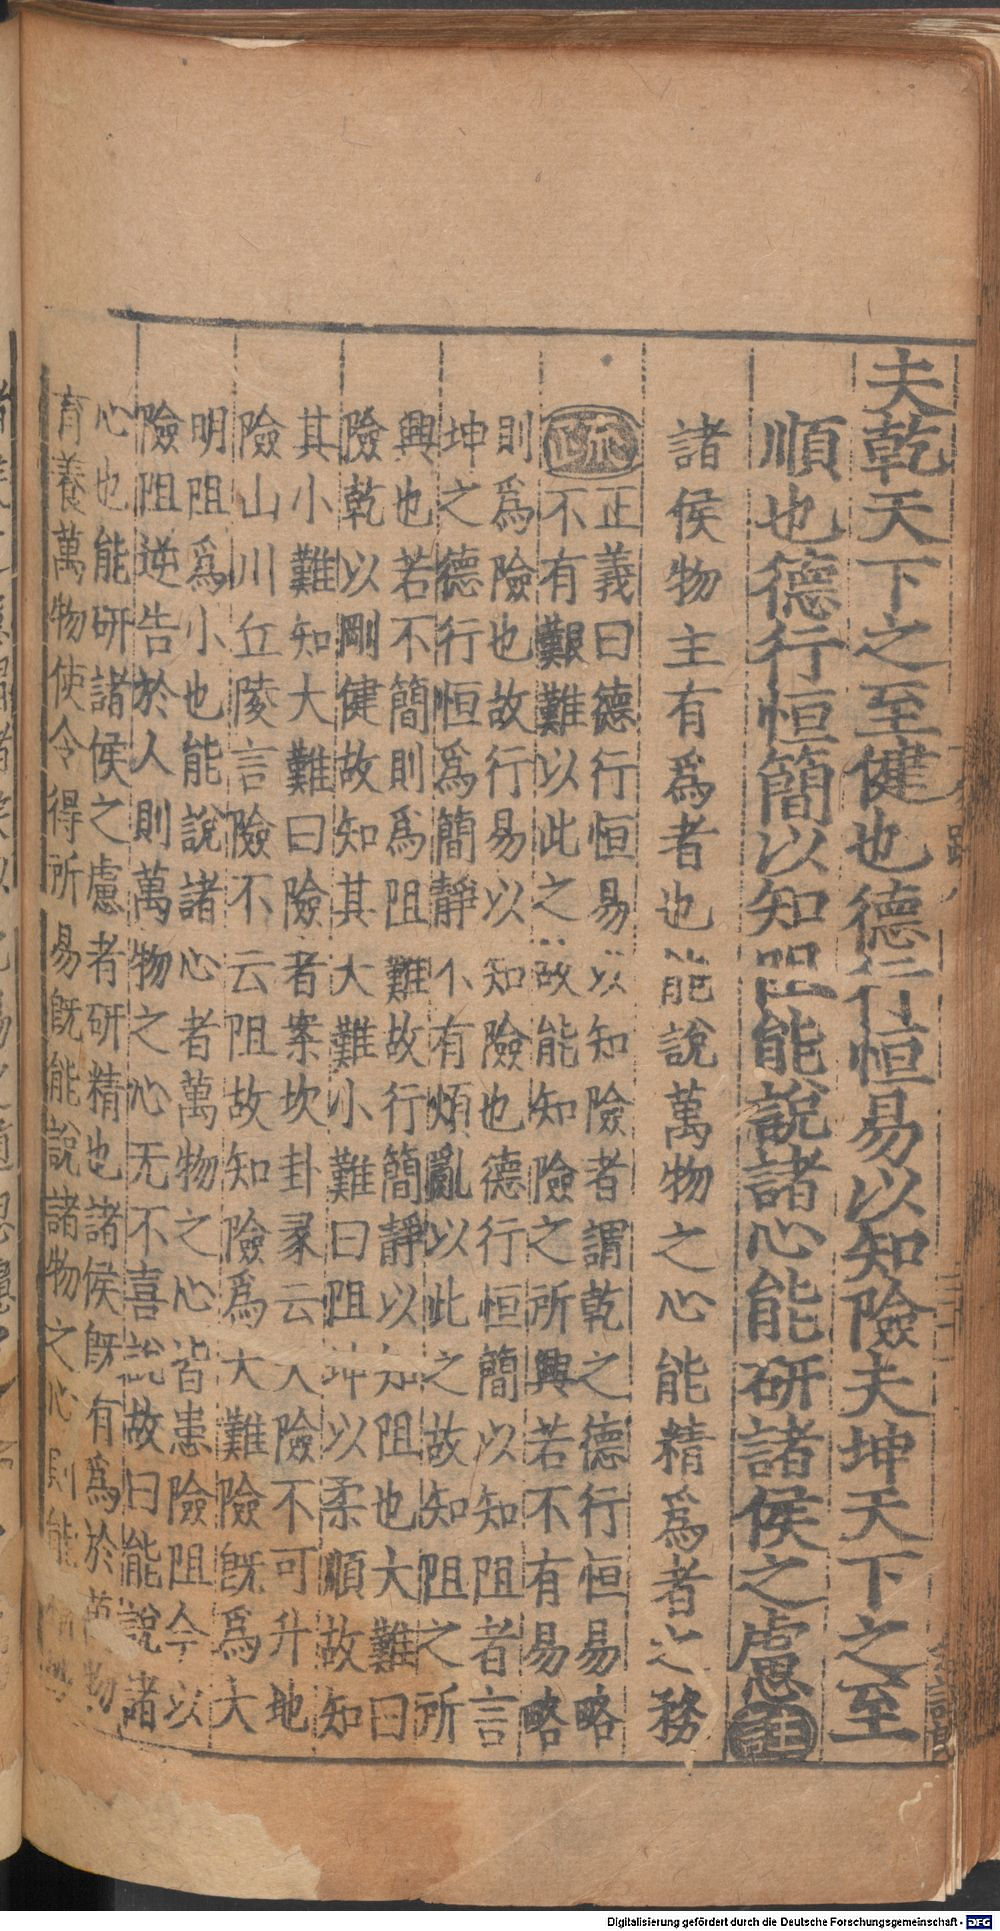 夫乾天下之至健也德行恒易以知險夫坤天下之至
順也德行恒簡以知阻能說諸心能研諸侯之慮註
諸侯物主有爲者也能說萬物之心能精爲者之務
疏正義曰德行恒易以知險者謂乾之德行恒易略
不有艱難以此之故能知險之所興若不有易略
則爲險也故行易以知險也德行恒簡以知阻者言
坤之德行恒爲簡靜不有煩亂以此之故知阻之所
興也若不簡則爲阻難故行簡靜以知阻也大難曰
險乾以剛健故知其大難小難曰阻坤以柔順故知
其小難知大難曰險者案坎卦彖云天險不可升地
險山川丘陵言險不云阻故知險爲大難險既爲大
明阻爲小也能說諸心者萬物之心皆患險阻今以
險阻逆告於人則萬物之心无不喜說故曰能說諸
心也能研諸侯之慮者研精也諸侯既有爲於萬物
育養萬物使令得所易既能說諸物之心則能
Digitalisierung gefördert durch die Deutsche Forschungsgemeinschaft - DFG